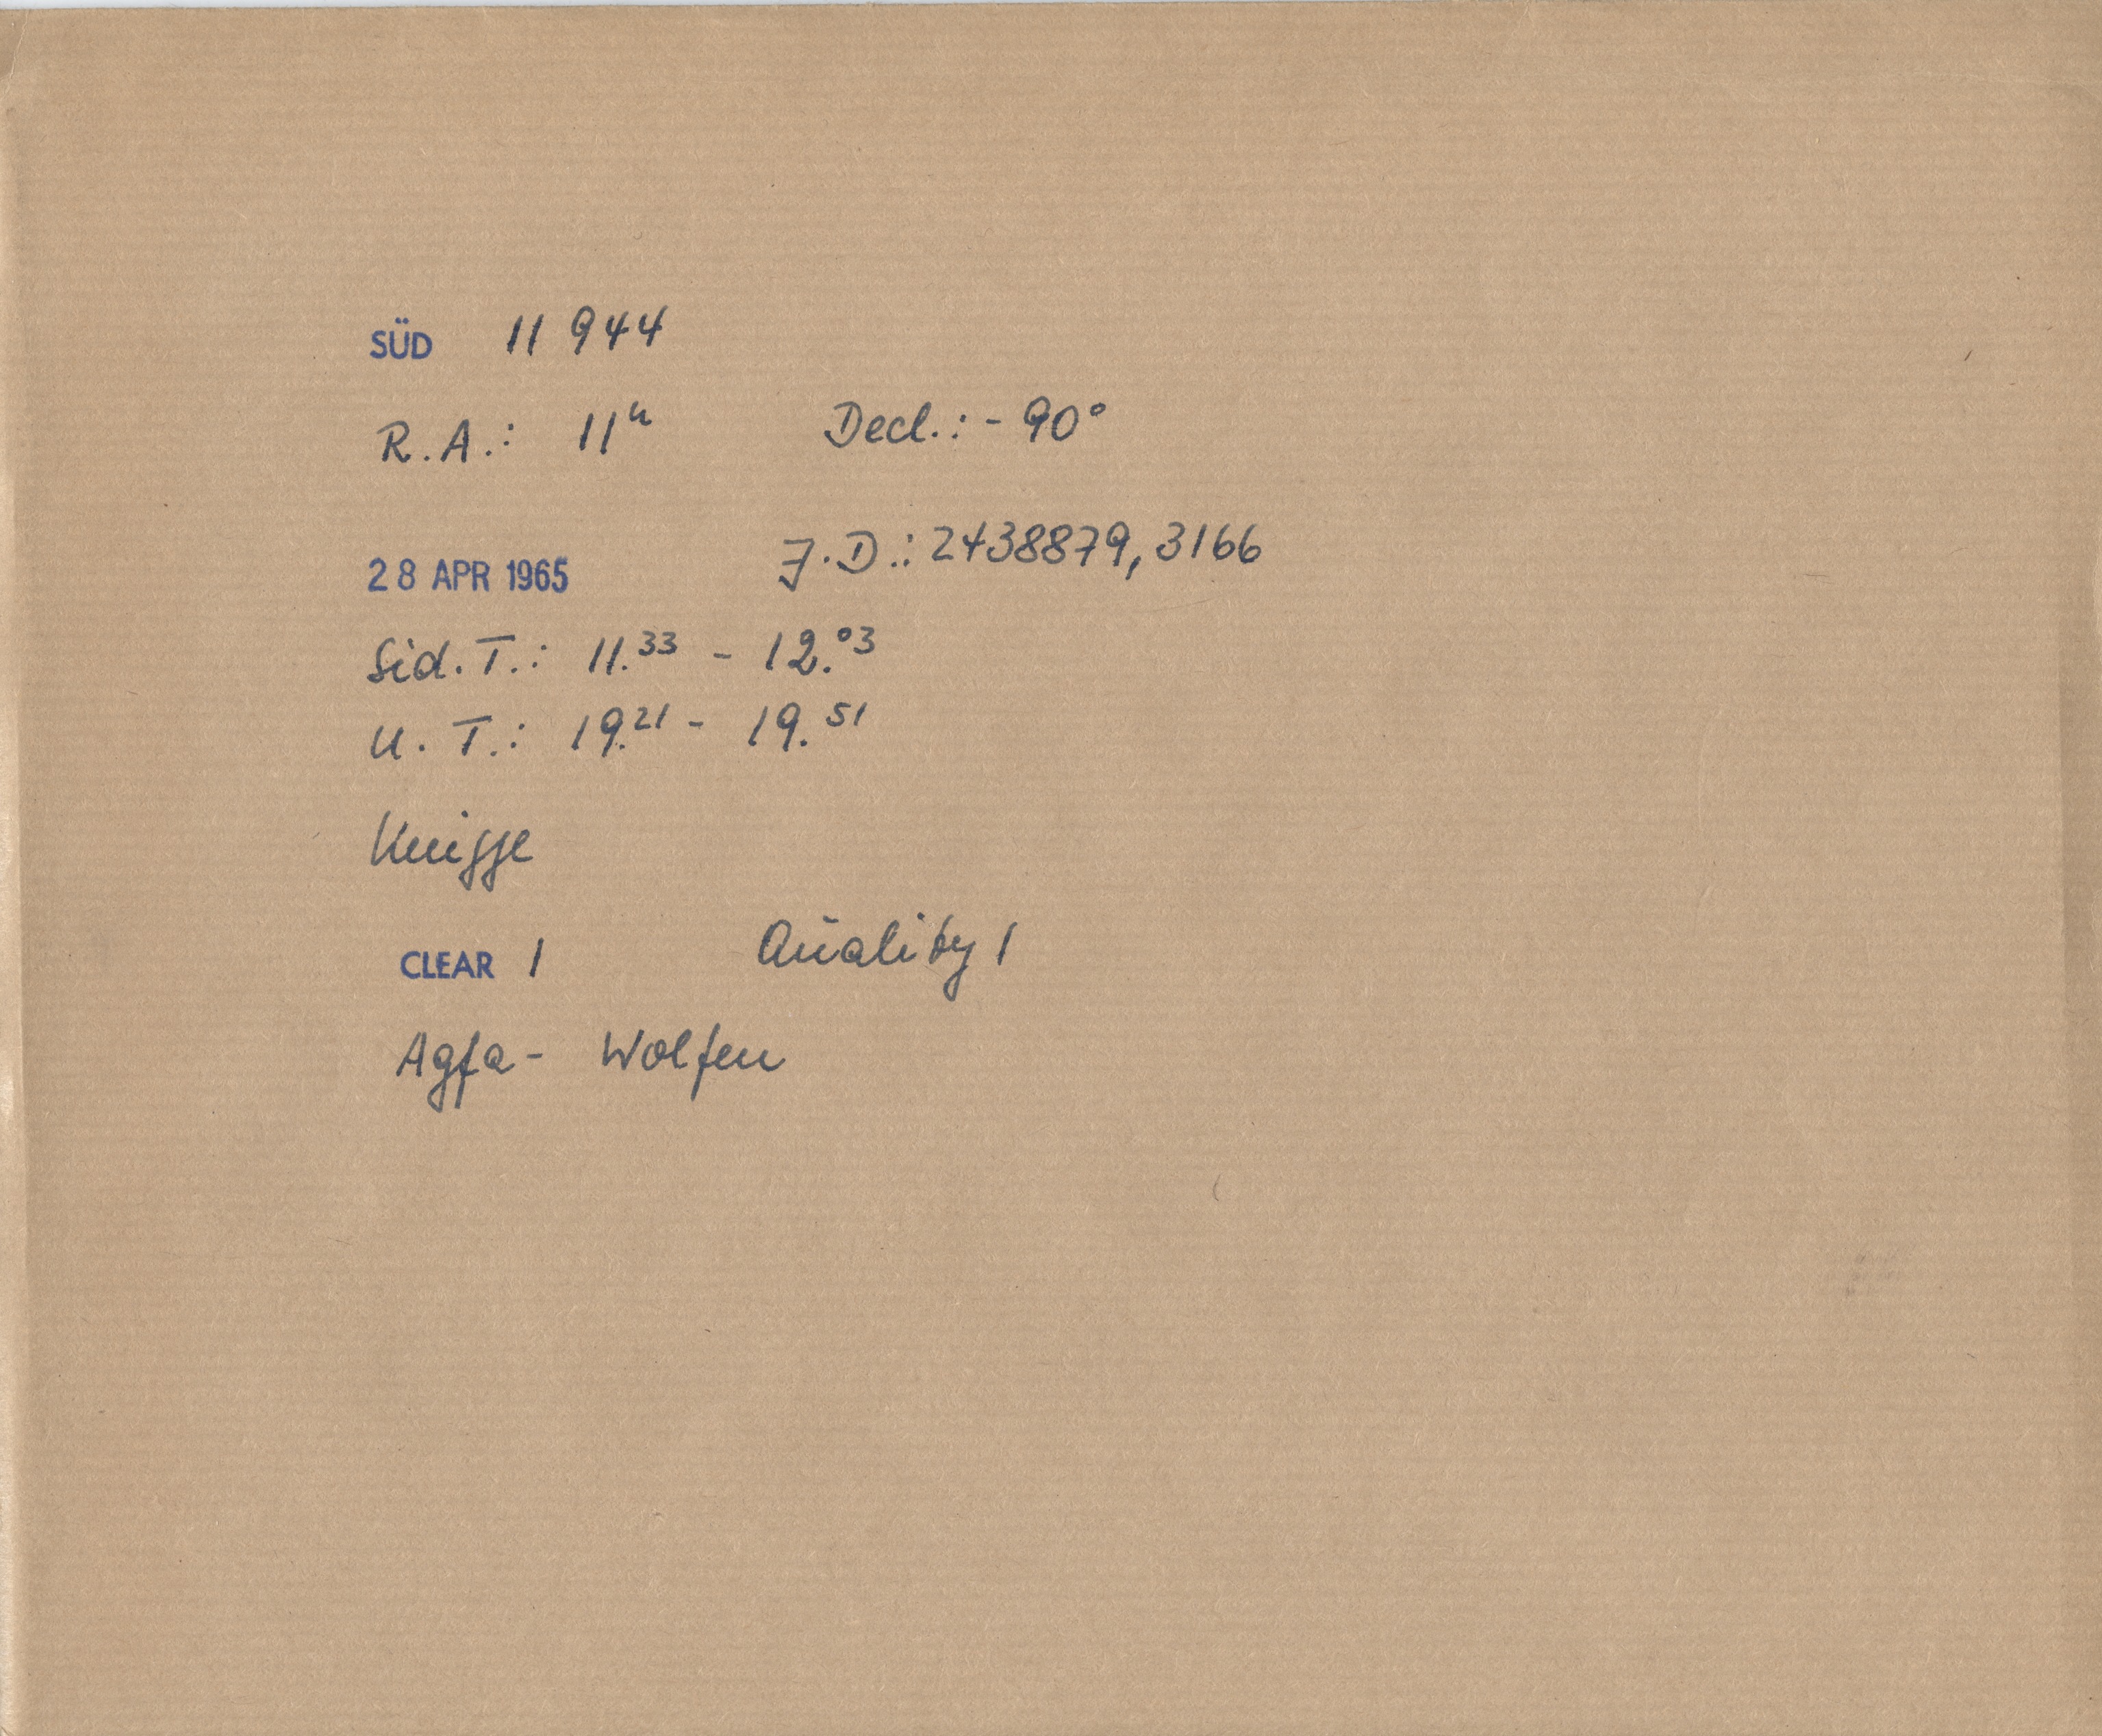 SÜD 11 944
R.A.: 11ʰ Decl.: - 90°
28 APR 1965 J.D.: 2438879,3166
Sid.T.: 11.³³ - 12.⁰³
U.T.: 19.²¹ - 19.⁵¹
Knigge
CLEAR 1 Quality 1
Agfa- Wolfen